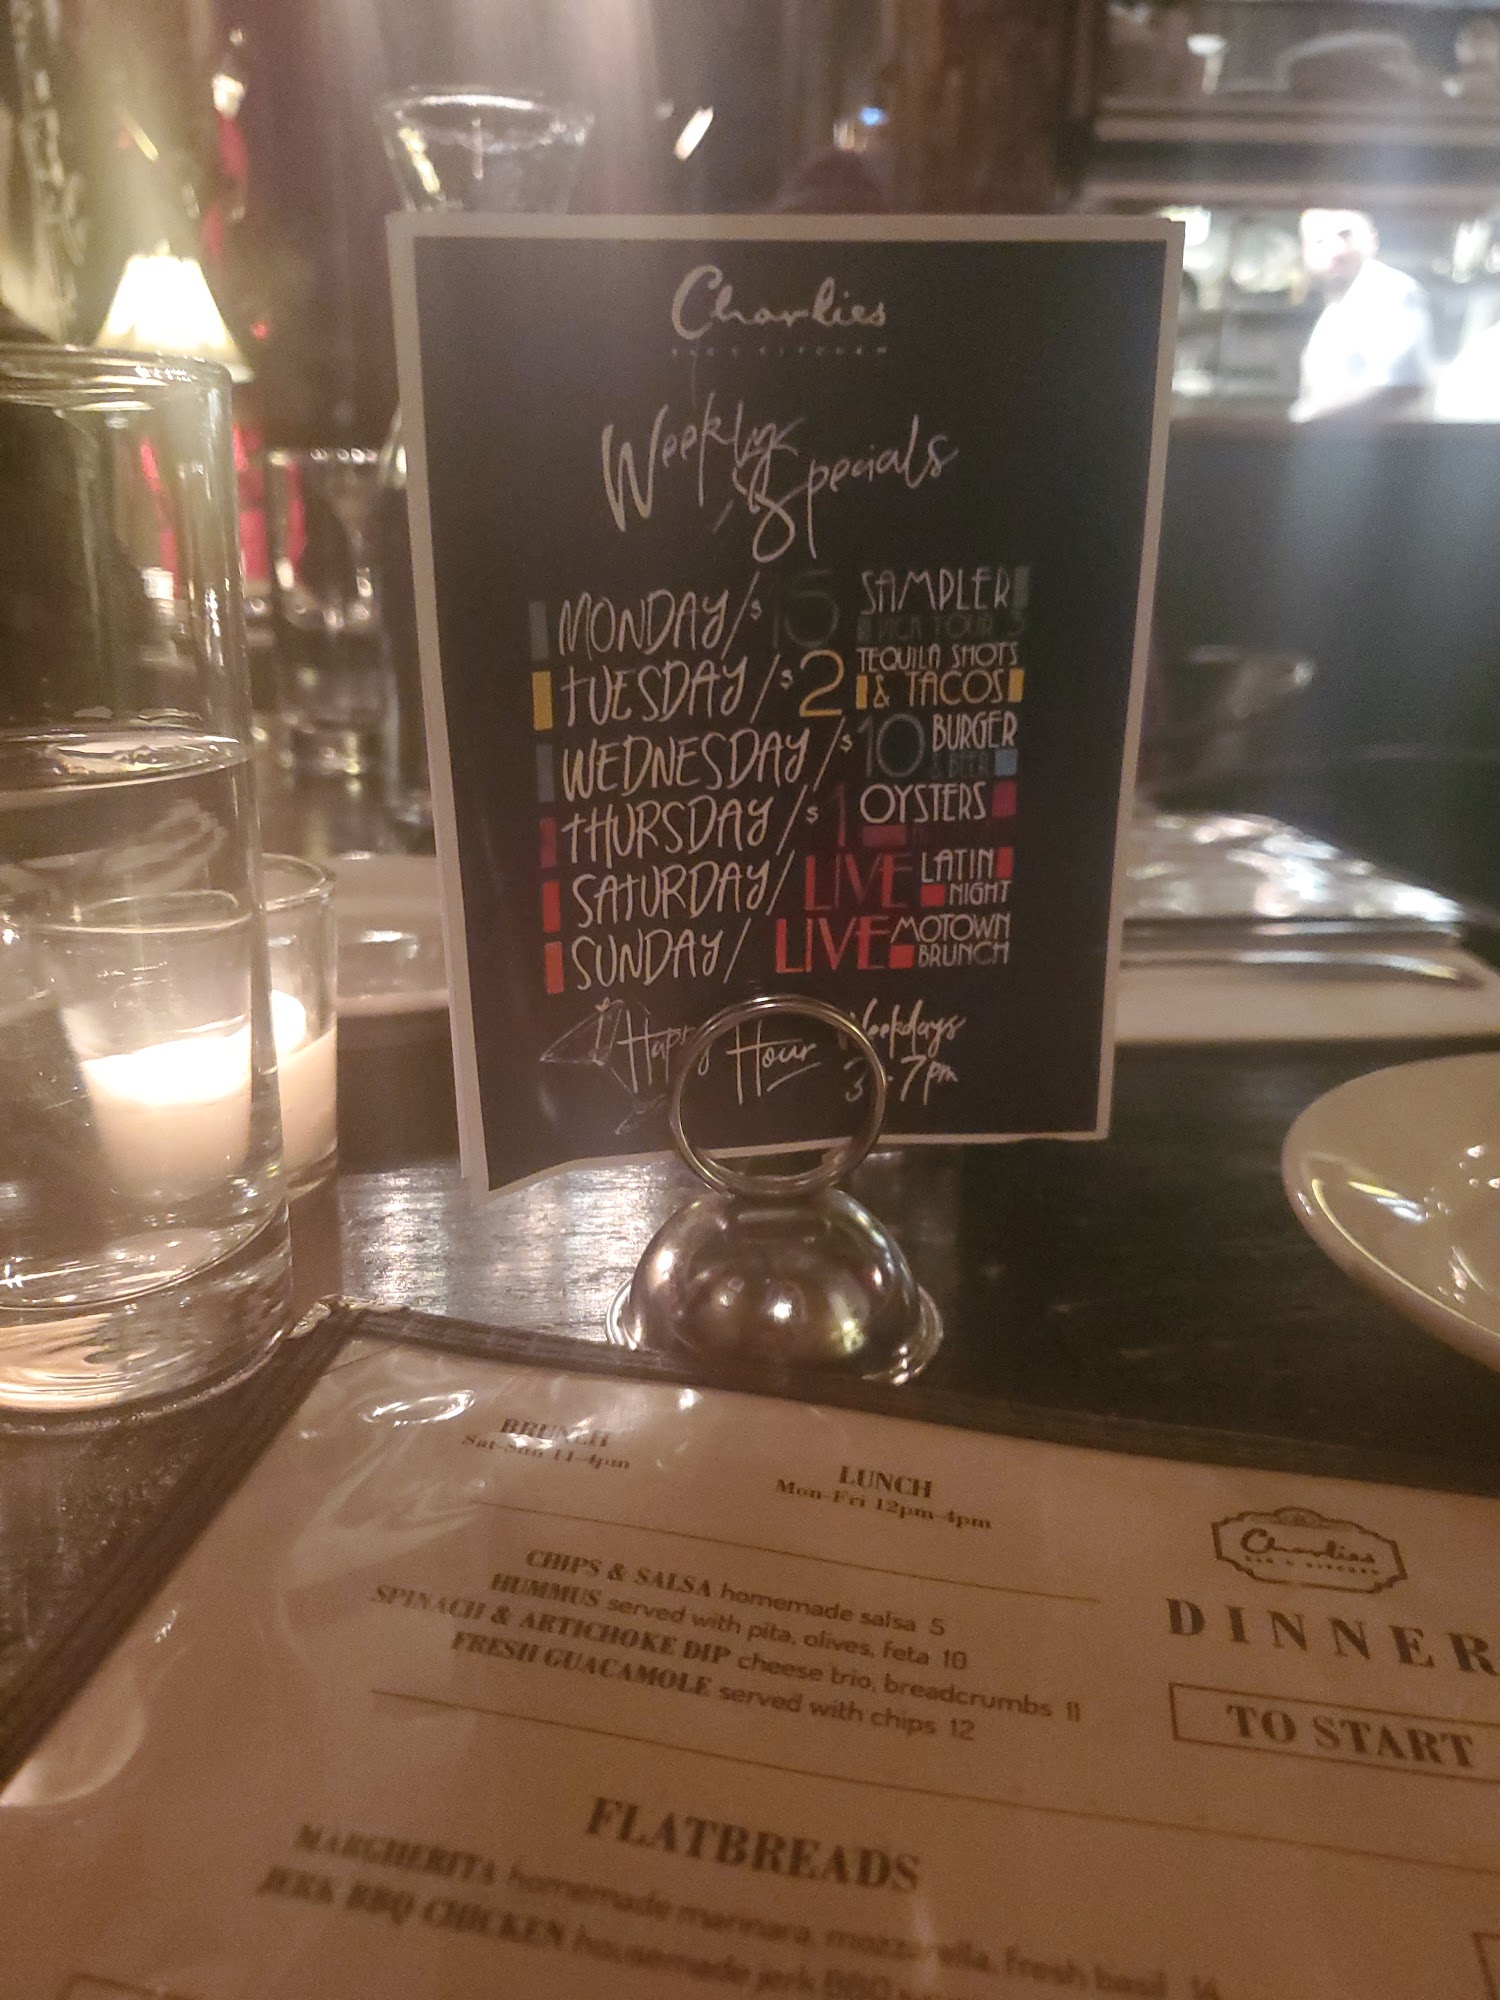 Charlies
BAR & KITCHEN
Weekly Specials
MONDAY/$15 SAMPLER
PICK YOUR 3
TUESDAY/$2 TEQUILA SHOTS
& TACOS
WEDNESDAY/$10 BURGER
& BEER
THURSDAY/$1 OYSTERS
SATURDAY/LIVE LATIN
NIGHT
SUNDAY/LIVE MOTOWN
BRUNCH
Happy Hour Weekdays
3-7pm
BRUNCH
Sat-Sun 11-4pm
LUNCH
Mon-Fri 12pm-4pm
Charlies
BAR & KITCHEN
DINNER
CHIPS & SALSA homemade salsa 5
HUMMUS served with pita, olives, feta 10
SPINACH & ARTICHOKE DIP cheese trio, breadcrumbs 11
FRESH GUACAMOLE served with chips 12
TO START
FLATBREADS
MARGHERITA homemade marinara, mozzarella, fresh basil
JERK BBQ CHICKEN housemade jerk BBQ